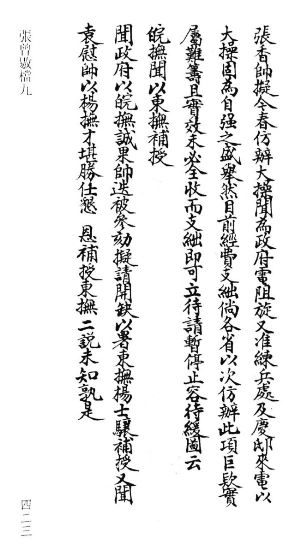 張香帥擬今春仿辦大操聞為政府電阻旋又准練兵處及慶邸來電以
大操固為自强之盛舉然目前經費支絀倘各省以次仿辦此項巨欵實
屬難籌且實效未必全收而支絀即可立待請暫停止容待緩圖云
皖撫聞以東撫補授
聞政府以皖撫誠果帥迭被參劾擬請開缺以署東撫楊士驤補授又聞
袁慰帥以楊撫才堪勝任懇 恩補授東撫二説未知孰是
張曾敭檔九
四二三